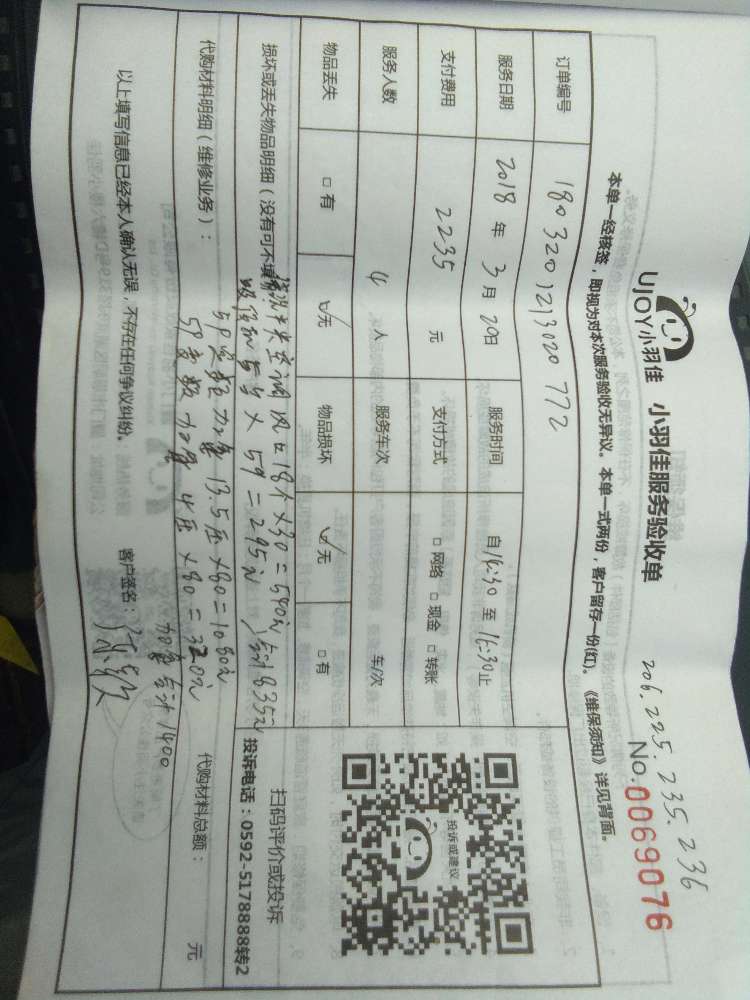 UJOY小羽佳 小羽佳服务验收单
206.225.235.236
No.0069076
本单一经核签，即视为对本次服务验收无异议。本单一式两份，客户留存一份(红)。《维保须知》详见背面。
订单编号 1803201213020772
服务日期 2018年3月20日 服务时间 自14:30至16:30止
支付费用 2235元 支付方式 □网络 □现金 □转账
服务人数 4人 服务车次 车/次
物品丢失 □有 ☑无 物品损坏 ☑无 □有
投诉或建议
扫码评价或投诉
投诉电话：0592-5178888转2
损坏或丢失物品明细（没有可不填
清洗 空调风口18个×30=540元
5台×59=295元 合计835元
代购材料明细（维修业务）：
5P 加氟13.5压×80=1080元
5P 加氟4压×80=320元
加氟合计1400
代购材料总额： 元
以上填写信息已经本人确认无误，不存在任何争议纠纷。 客户签名：